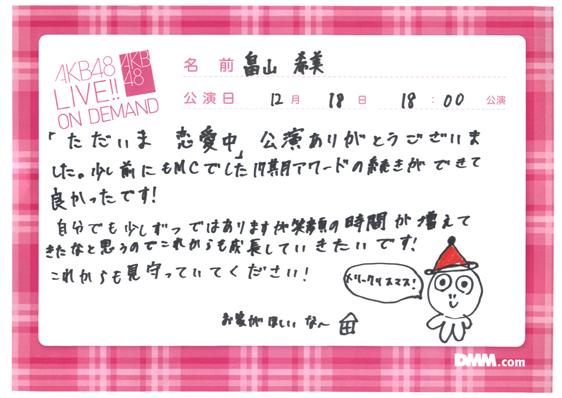 AKB48
LIVE!!
ON DEMAND
AKB
48
名前 畠山 希美
公演日 12月 18日 18:00 公演
「ただいま 恋愛中」公演ありがとうございま
した。少し前にもMCでした17期アワードの続きができて
良かったです!
自分でも少しずつではありますが笑顔の時間が増えて
きたなと思うのでこれからも成長していきたいです!
これからも見守っていてください!
メリークリスマス!
お家がほしいな〜
DMM.com